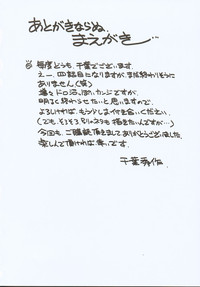 あとがきならぬ、
まえがき…
毎度どうも、千葉でございます。
えー、四話目になりますが、まだ終わりそうに
ありません（笑）
ドロ沼っぽいカンジですが、
明るく終わらせたいと思いますので、
よろしければ、もう少しおつき合いください。
（でも、そろそろ別のネタも描きたいんですが…）
今回も、ご購読頂きましてありがとうございました。
楽しんで頂ければ幸いです。
千葉秀作